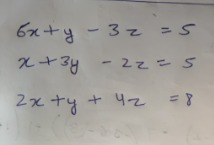 6x+y - 3z = 5
x+3y - 2z = 5
2x+y + 4z = 8